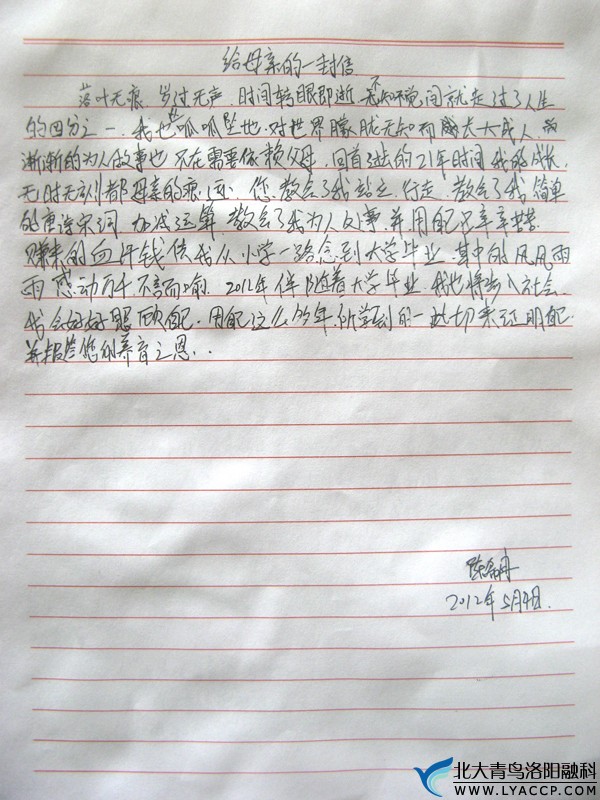 给母亲的一封信
落叶无痕 岁过无声 时间转眼即逝 不知不觉间就走过了人生
的四分之一. 我也从呱呱坠地.对世界朦胧无知而成长大成人
渐渐的为人做事也不在需要依赖父母. 回首过去的21年时间我的成长.
无时无刻都母亲的痕迹. 您.教会了我站立.行走.教会了我简单
的唐诗宋词 加减运算 教会了我为人处事.并用自己辛辛苦苦
赚来的血汗钱供我从小学一路念到大学毕业 其中的风风雨
雨感动万千不言而喻. 2012年伴随着大学毕业.我也将步入社会.
我会好好照顾自己.用自己这么多年.所学到的一切来证明自己
并报答您的养育之恩..
2012年5月4日.
北大青鸟洛阳融科
WWW.LYACCP.COM